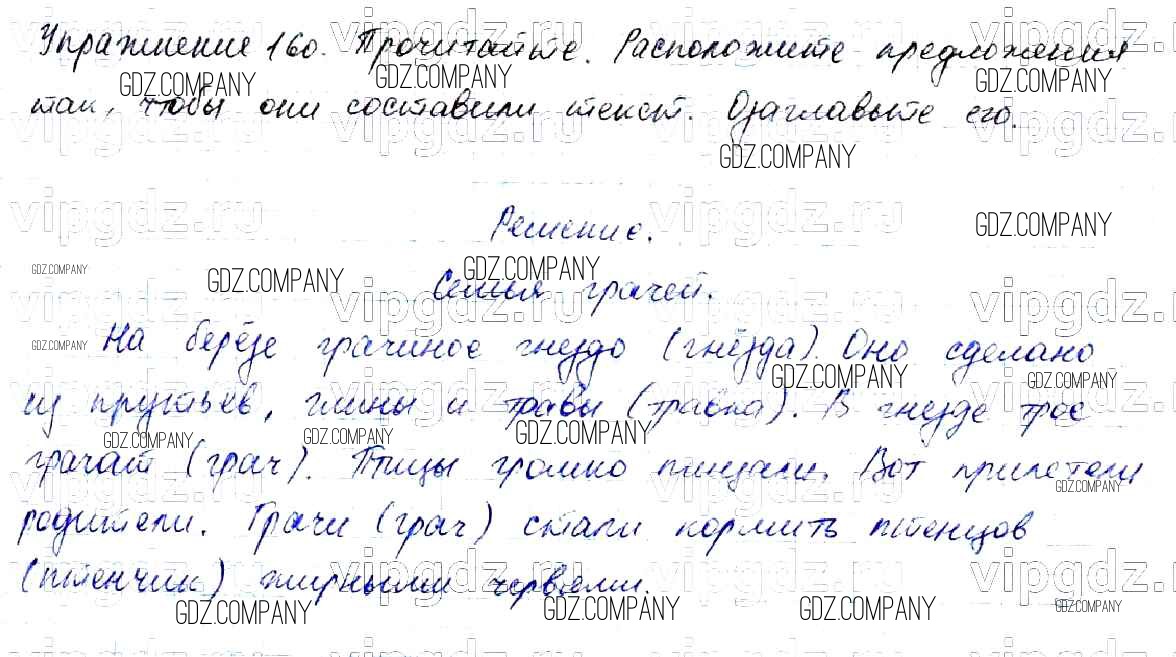 Упражнение 160. Прочитайте. Расположите предложения
так, чтобы они составили текст. Озаглавьте его.
Решение.
Семья грачей.
На берёзе грачиное гнездо (гнёзда). Оно сделано
из прутьев, глины и травы (травка). В гнезде трое
грачат (грач). Птицы громко пищали. Вот прилетели
родители. Грачи (грач) стали кормить птенцов
(птенчик) жирными червями.
vipgdz.ru
GDZ.COMPANY